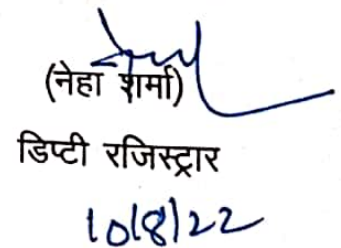 (नेहा शर्मा)
डिप्टी रजिस्ट्रार
10/8/22